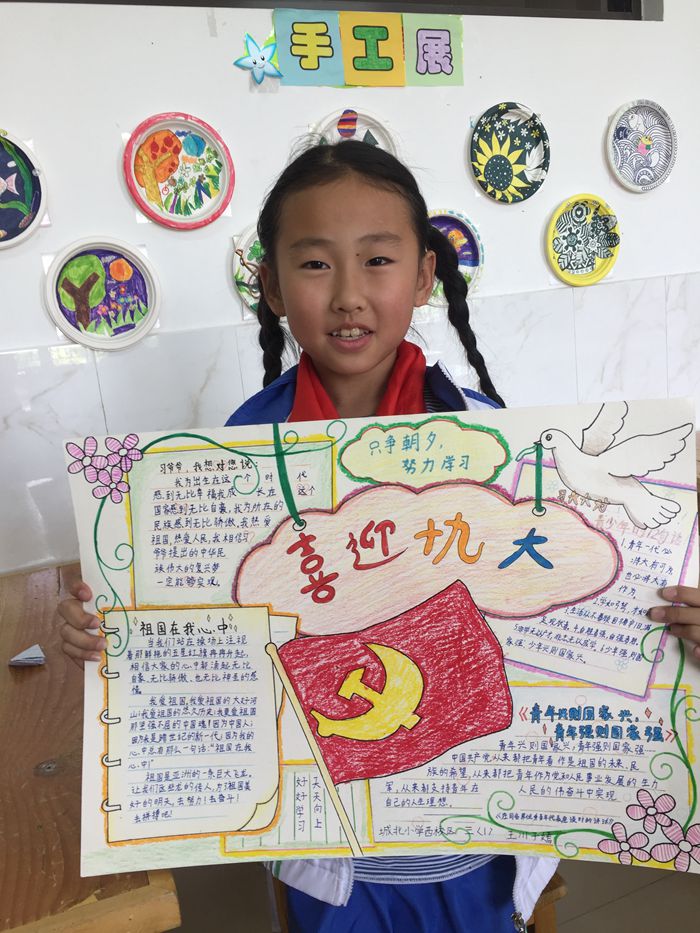 手工展
只争朝夕,
努力学习
喜迎十九大
习爷爷,我想对您说:
我为出生在这个时代
感到无比幸福我成长在这个
国家感到无比自豪,我为所在的
民族感到无比骄傲,我热爱
祖国,热爱人民,我木相信习
爷爷提出的中华民
族伟大的复兴梦
一定能够实现。
祖国在我心中
当我们站在操场上注视
着那鲜艳的五星红旗冉冉升起,
相信大家的心中都涌起无比
自豪、无比骄傲、也无比神圣的感
情。
我爱祖国,我爱祖国的大好河
山!我爱祖国的悠久历史!我更爱祖国
那坚强不屈的中国魂!因为中国人;
因为我是跨世纪的新一代;因为我的
心中总有那么一句话:“祖国在我
心中!”
祖国是亚洲的一条巨大飞龙。
让我们这些龙的传人,为了祖国美
好的明天,去努力!去奋斗!
去拼搏吧!
好好学习
天天向上
青少年
1.青年一代必
将大有可为
也必将大有
作为
《青年兴则国家兴,
青年强则国家强》
青年兴则国家兴,青年强则国家强……
中国共产党从来都把青年看作是祖国的未来、民
族的希望,从来都把青年作为党和人民事业发展的生力
军,从来都支持青年在人民的伟大奋斗中实现
自己的人生理想。
城北小学西校区 三(1)